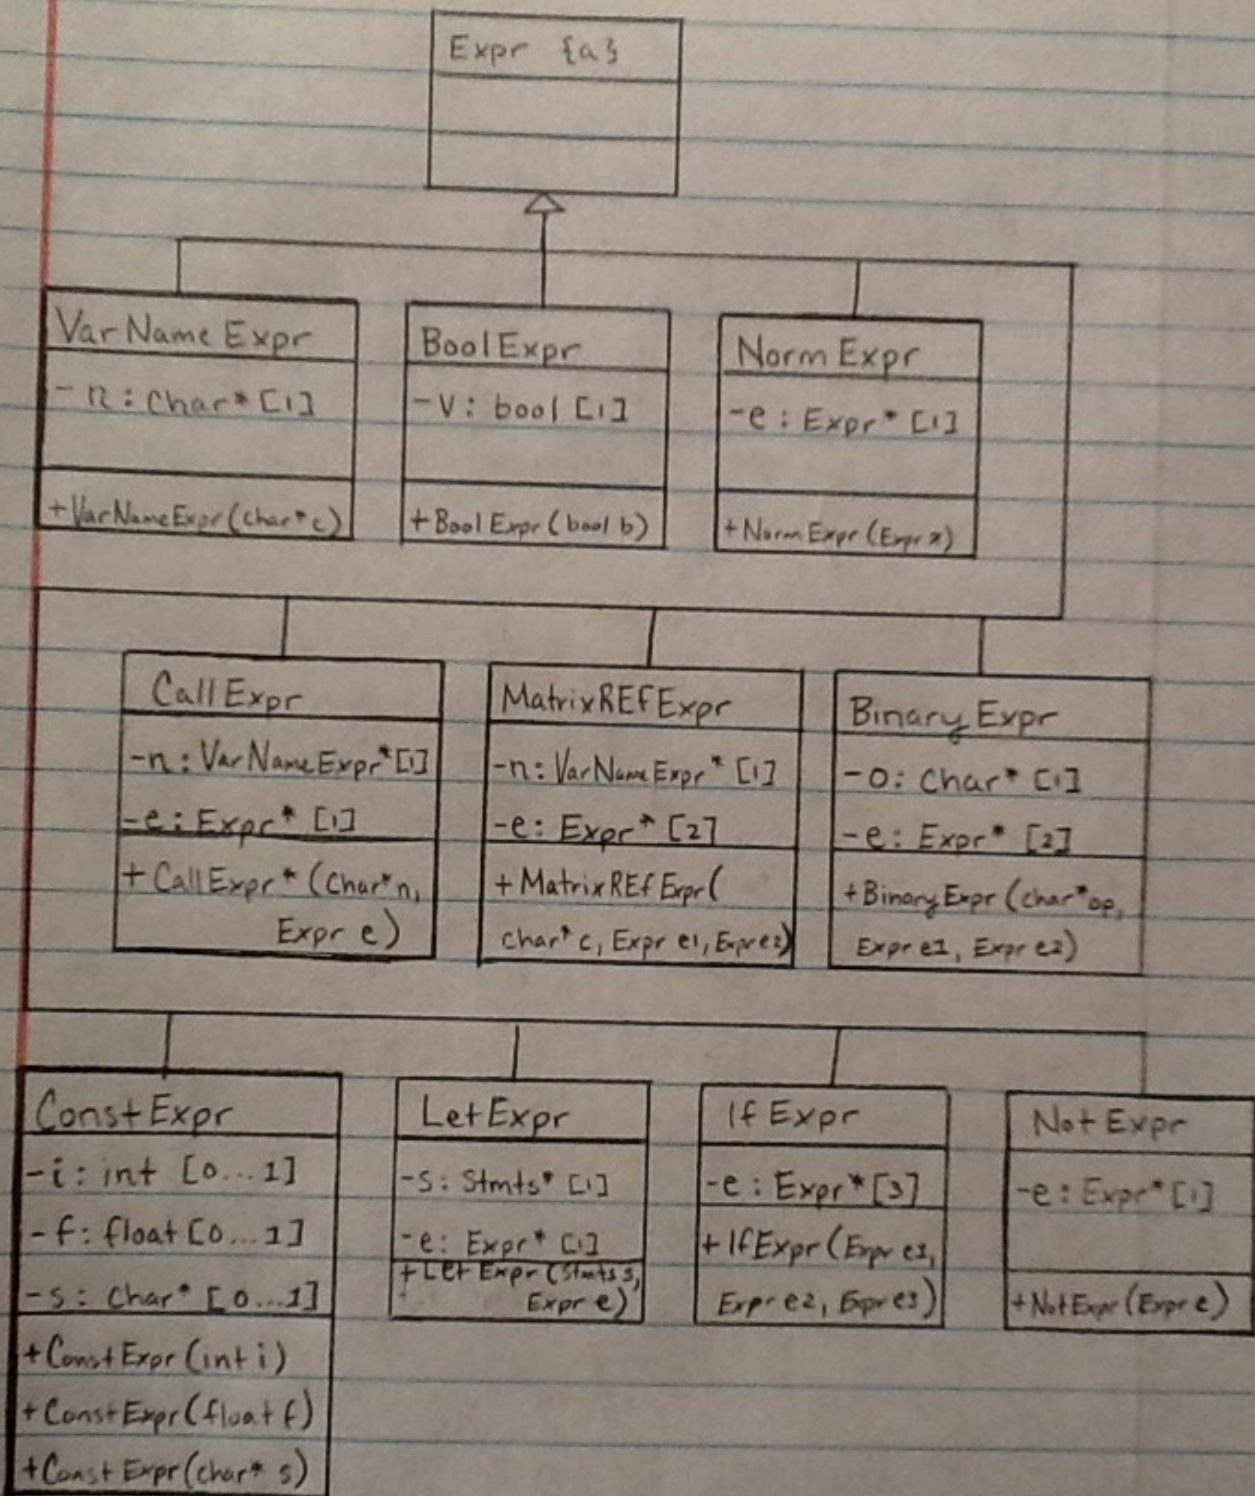 Expr {a}
VarNameExpr
-n: Char* [1]
+VarNameExpr(char* c)
BoolExpr
-v: bool [1]
+BoolExpr(bool b)
NormExpr
-e: Expr* [1]
+NormExpr(Expr x)
CallExpr
-n: VarNameExpr* [1]
-e: Expr* [1]
+CallExpr* (Char* n,
Expr e)
MatrixREfExpr
-n: VarNameExpr* [1]
-e: Expr* [2]
+MatrixREfExpr(
char* c, Expr e1, Expr e2)
BinaryExpr
-o: Char* [1]
-e: Expr* [2]
+BinaryExpr(char* op,
Expr e1, Expr e2)
ConstExpr
-i: int [0...1]
-f: float [0...1]
-s: Char* [0...1]
+ConstExpr(int i)
+ConstExpr(float f)
+ConstExpr(char* s)
LetExpr
-s: Stmts* [1]
-e: Expr* [1]
+LetExpr(Stmts s,
Expr e)
IfExpr
-e: Expr* [3]
+IfExpr(Expr e1,
Expr e2, Expr e3)
NotExpr
-e: Expr* [1]
+NotExpr(Expr e)